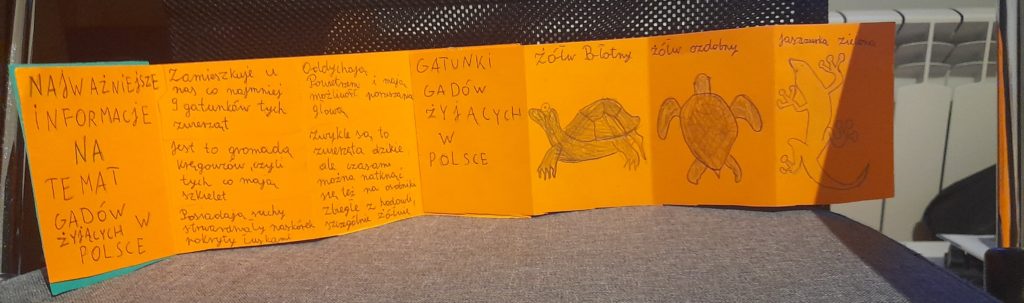 NAJWAŻNIEJSZE
INFORMACJE
NA
TEMAT
GADÓW
ŻYJĄCYCH W
POLSCE
Zamieszkuje u
nas co najmniej
9 gatunków tych
zwierząt
Jest to gromada
kręgowców, czyli
tych co mają
szkielet
Posiadają suchy
stwardniały naskórek
pokryty łuskami
Oddychają
Powietrzem i mają
możliwość poruszania
głową
Zwykle są to
zwierzęta dzikie
ale czasami
można natknąć
się też na osobniki
zbiegłe z hodowli,
szczególnie żółwie
GATUNKI
GADÓW
ŻYJĄCYCH
W
POLSCE
Żółw Błotny
żółw ozdobny
jaszczurka zielona